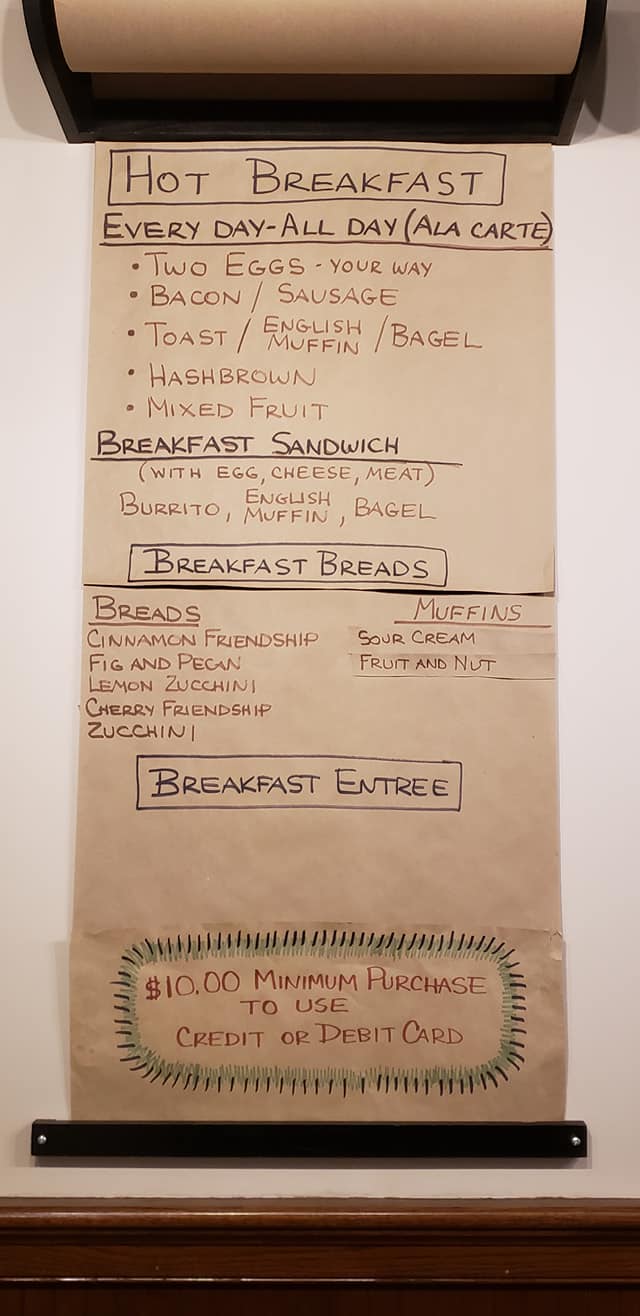 HOT BREAKFAST
EVERY DAY-ALL DAY (ALA CARTE)
• TWO EGGS - YOUR WAY
• BACON / SAUSAGE
• TOAST / ENGLISH MUFFIN / BAGEL
• HASHBROWN
• MIXED FRUIT
BREAKFAST SANDWICH
(WITH EGG, CHEESE, MEAT)
BURRITO, ENGLISH MUFFIN, BAGEL
BREAKFAST BREADS
BREADS
CINNAMON FRIENDSHIP
FIG AND PECAN
LEMON ZUCCHINI
CHERRY FRIENDSHIP
ZUCCHINI
MUFFINS
SOUR CREAM
FRUIT AND NUT
BREAKFAST ENTREE
$10.00 MINIMUM PURCHASE
TO USE
CREDIT OR DEBIT CARD